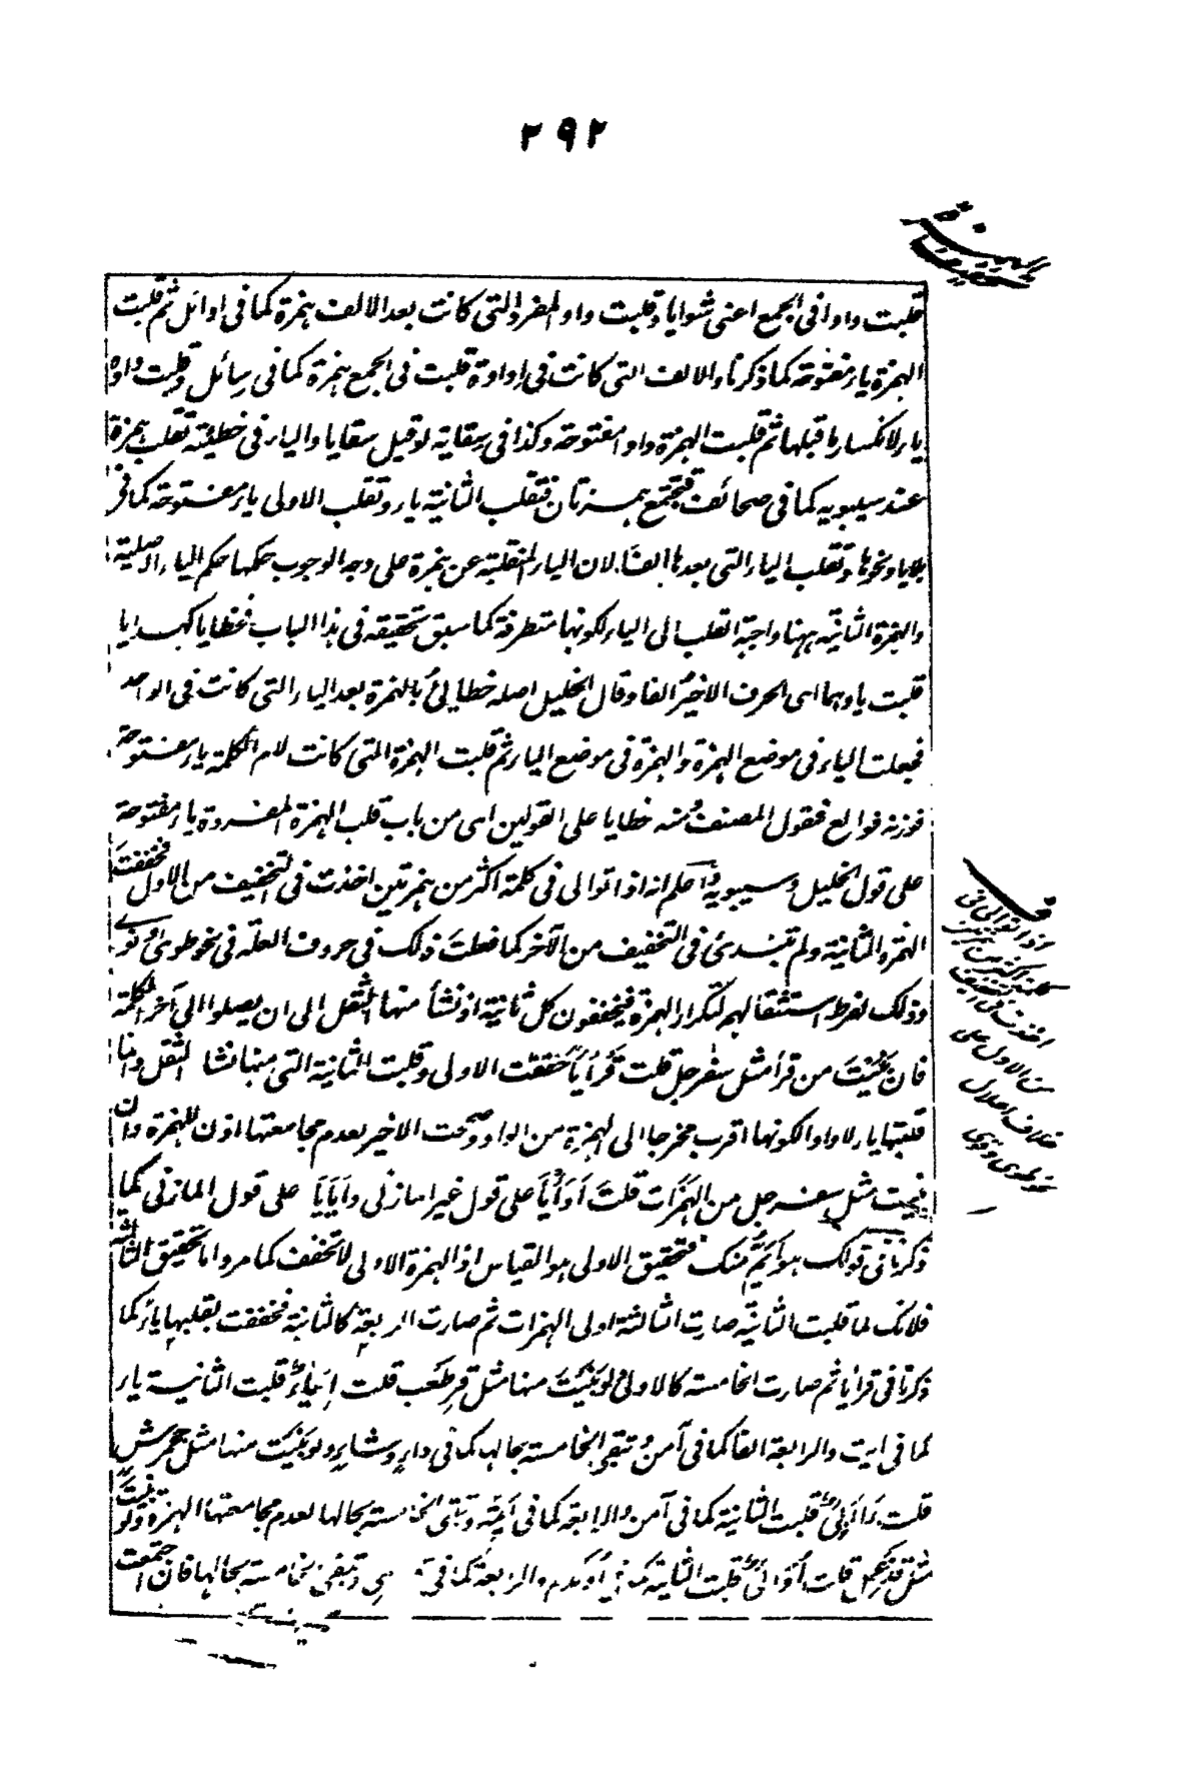 ٢٩٢
قلبت واوا فى الجمع اعنى شوايا وقلبت واو المفرد التى كانت بعد الالف همزة كما فى اوائل ثم قلبت
الهمزة ياء مفتوحة كما ذكرنا والالف التى كانت فى اداوة قلبت فى الجمع همزة كما فى رسائل وقلبت واوه
ياء لانكسار ما قبلها ثم قلبت الهمزة واوا مفتوحة وكذا فى سقاية لو قيل سقايا والياء فى خطيئة تقلب همزة
عند سيبويه كما فى صحائف فتجتمع همزتان فتقلب الثانية ياء وتقلب الاولى ياء مفتوحة كما فى
بلايا ونحوها وتقلب الياء التى بعدها الفا لان الياء المنقلبة عن همزة على وجه الوجوب حكمها حكم الياء الاصلية
والهمزة الثانية ههنا واجبة القلب الى الياء لكونها متطرفة كما سبق تحقيقه فى هذا الباب فخطايا كهدايا
قلبت ياوهما اى الحرف الاخير الفا وقال الخليل اصله خطايئ بالهمزة بعد الياء التى كانت فى الواحد
فجعلت الياء فى موضع الهمزة والهمزة فى موضع الياء ثم قلبت الهمزة التى كانت لام الكلمة ياء مفتوحة
فوزنه فوالع فقول المصنف ومنه خطايا على القولين اى من باب قلب الهمزة المفردة ياء مفتوحة
على قول الخليل وسيبويه واعلم انه اذا توالى فى كلمة اكثر من همزتين اخذت فى التخفيف من الاول فخففت
الهمزة الثانية ولم تبتدئ فى التخفيف من الآخر كما فعلت ذلك فى حروف العلة فى نحو طوى ونوى
وذلك لفرط استثقالهم لتكرار الهمزة فيخففون كل ثانية اذ نشأ منها الثقل الى ان يصلوا الى آخر الكلمة
فان بنيت من قرأ مثل سفرجل قلت قرأيأ خففت الاولى وقلبت الثانية التى منها نشأ الثقل وانما
قلبتها ياء لا واوا لكونها اقرب مخرجا الى الهمزة من الواو وصحت الاخير لعدم مجامعتها اذن للهمزة وان
بنيت مثل سفرجل من الهمزات قلت أوأيأ على قول غير المازنى وأيأيأ على قول المازنى كما
ذكرنا فى قولك هو أيم منك فتحقيق الاولى هو القياس اذ الهمزة الاولى لا تخفف كما مر واما تحقيق الثالثة
فلانك لما قلبت الثانية صارت الثالثة اولى الهمزات ثم صارت الرابعة كالثانية فخففت بقلبها ياء كما
ذكرنا فى قرأيأ ثم صارت الخامسة كالاولى ولو بنيت منها مثل قرطعب قلت إيئاء قلبت الثانية ياء
كما فى ايت والرابعة الفا كما فى آمن وتبقى الخامسة بحالها كما فى داء وشاء ولو بنيت منها مثل جحمرش
قلت قلبت الثانية كما فى آمن والرابعة كما فى أيمة وتبقى الخامسة بحالها لعدم مجامعتها الهمزة ولو بنيت
مثل قذعمل قلت قلبت الثانية كما فى أويدم والرابعة كما فى وتبقى الخامسة بحالها فان اجتمعت
اذا توالى فى
كلمة اكثر من همزتين
اخذت فى التخفيف
من الاول على
خلاف اعلال
نحو طوى ونوى